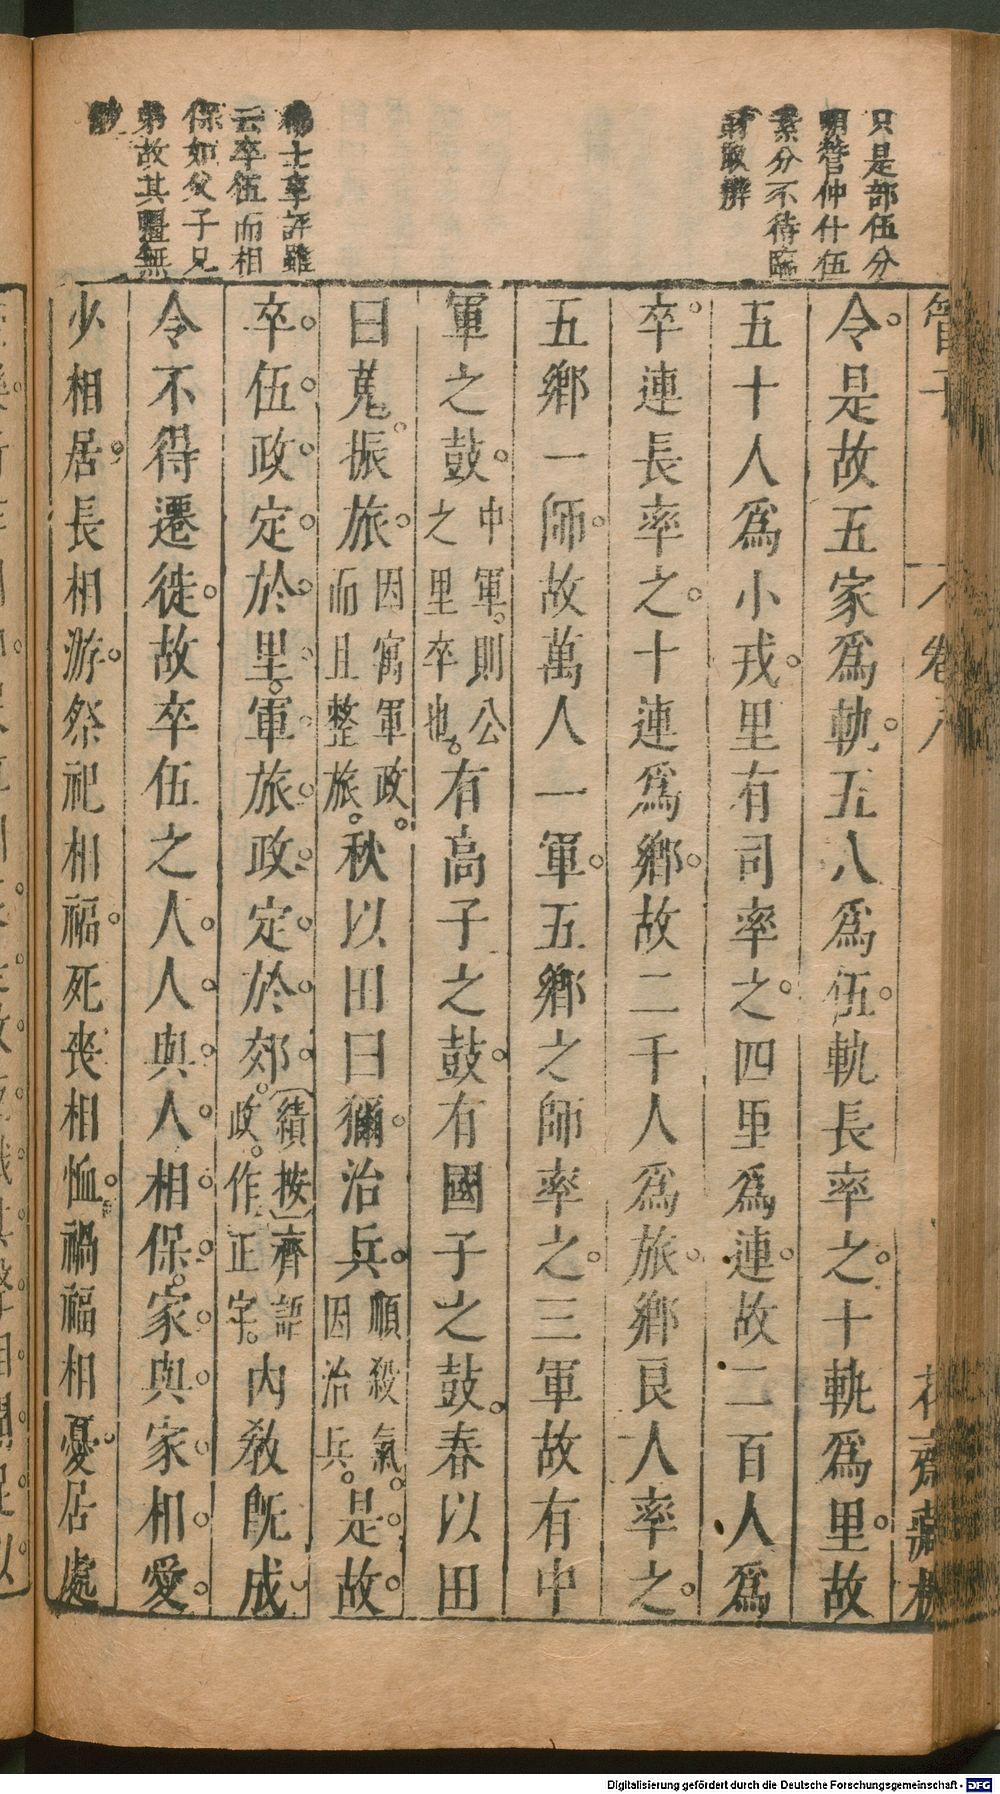 只是部伍分
明管仲什伍
素分不待臨
時取辦
士享評雖
云卒伍而相
保如父子兄
弟故其畺無
令是故五家爲軌五人爲伍軌長率之十軌爲里故
五十人爲小戎里有司率之四里爲連故二百人爲
卒連長率之十連爲鄉故二千人爲旅鄉良人率之
五鄉一師故萬人一軍五鄉之師率之三軍故有中
軍之鼓中軍則公之里卒也有高子之鼓有國子之鼓春以田
曰蒐振旅因寓軍政而且整旅秋以田曰獮治兵順殺氣因治兵是故
卒伍政定於里軍旅政定於郊績按齊語政作正字內敎旣成
令不得遷徙故卒伍之人人與人相保家與家相愛
少相居長相游祭祀相福死喪相恤禍福相憂居處
管子
卷八
花齋藏板
Digitalisierung gefördert durch die Deutsche Forschungsgemeinschaft - DFG